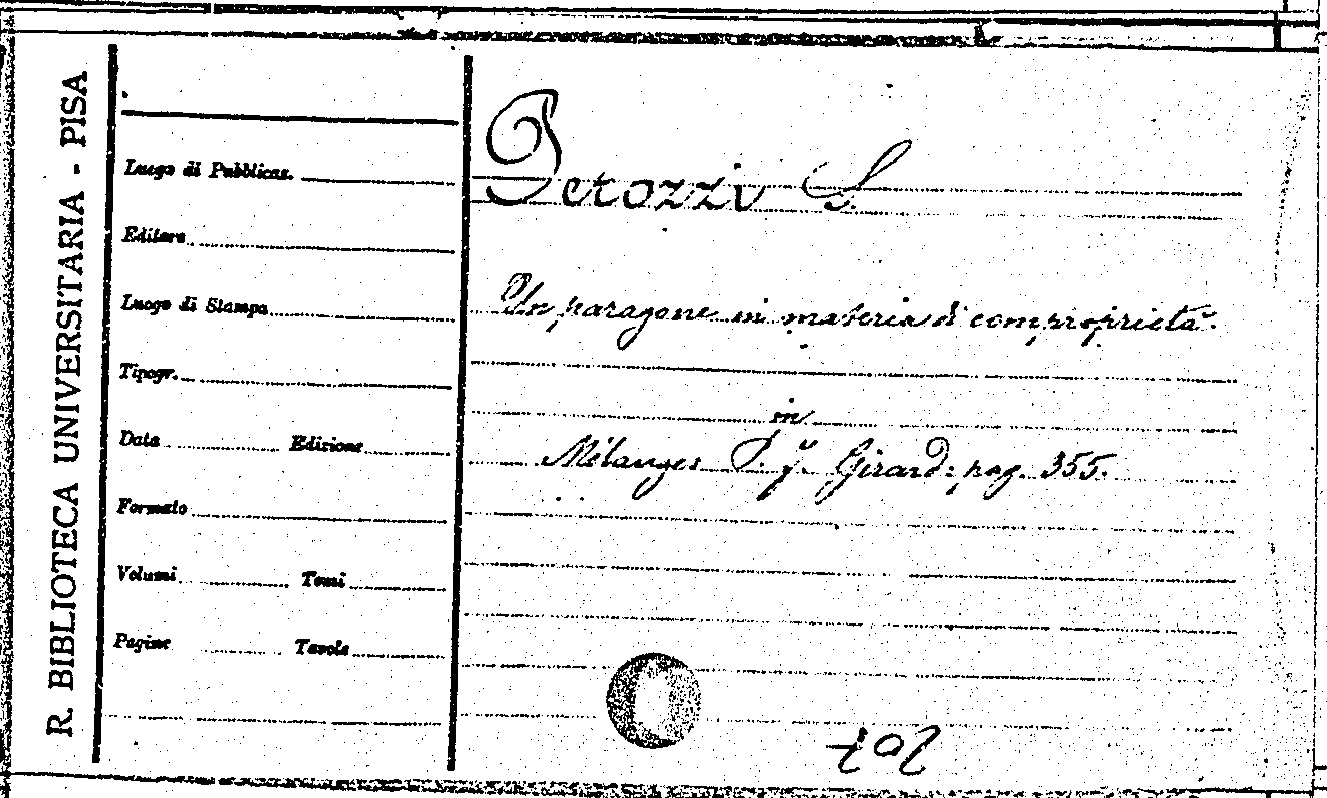 R. BIBLIOTECA UNIVERSITARIA - PISA
Luogo di Pubblicaz.
Editore
Luogo di Stampa
Tipogr.
Data Edizione
Formato
Volumi Tomi
Pagine Tavole
Perozzi S.
Un paragone in materia di comproprietà.
in
Mélanges P. F. Girard: pag. 355.